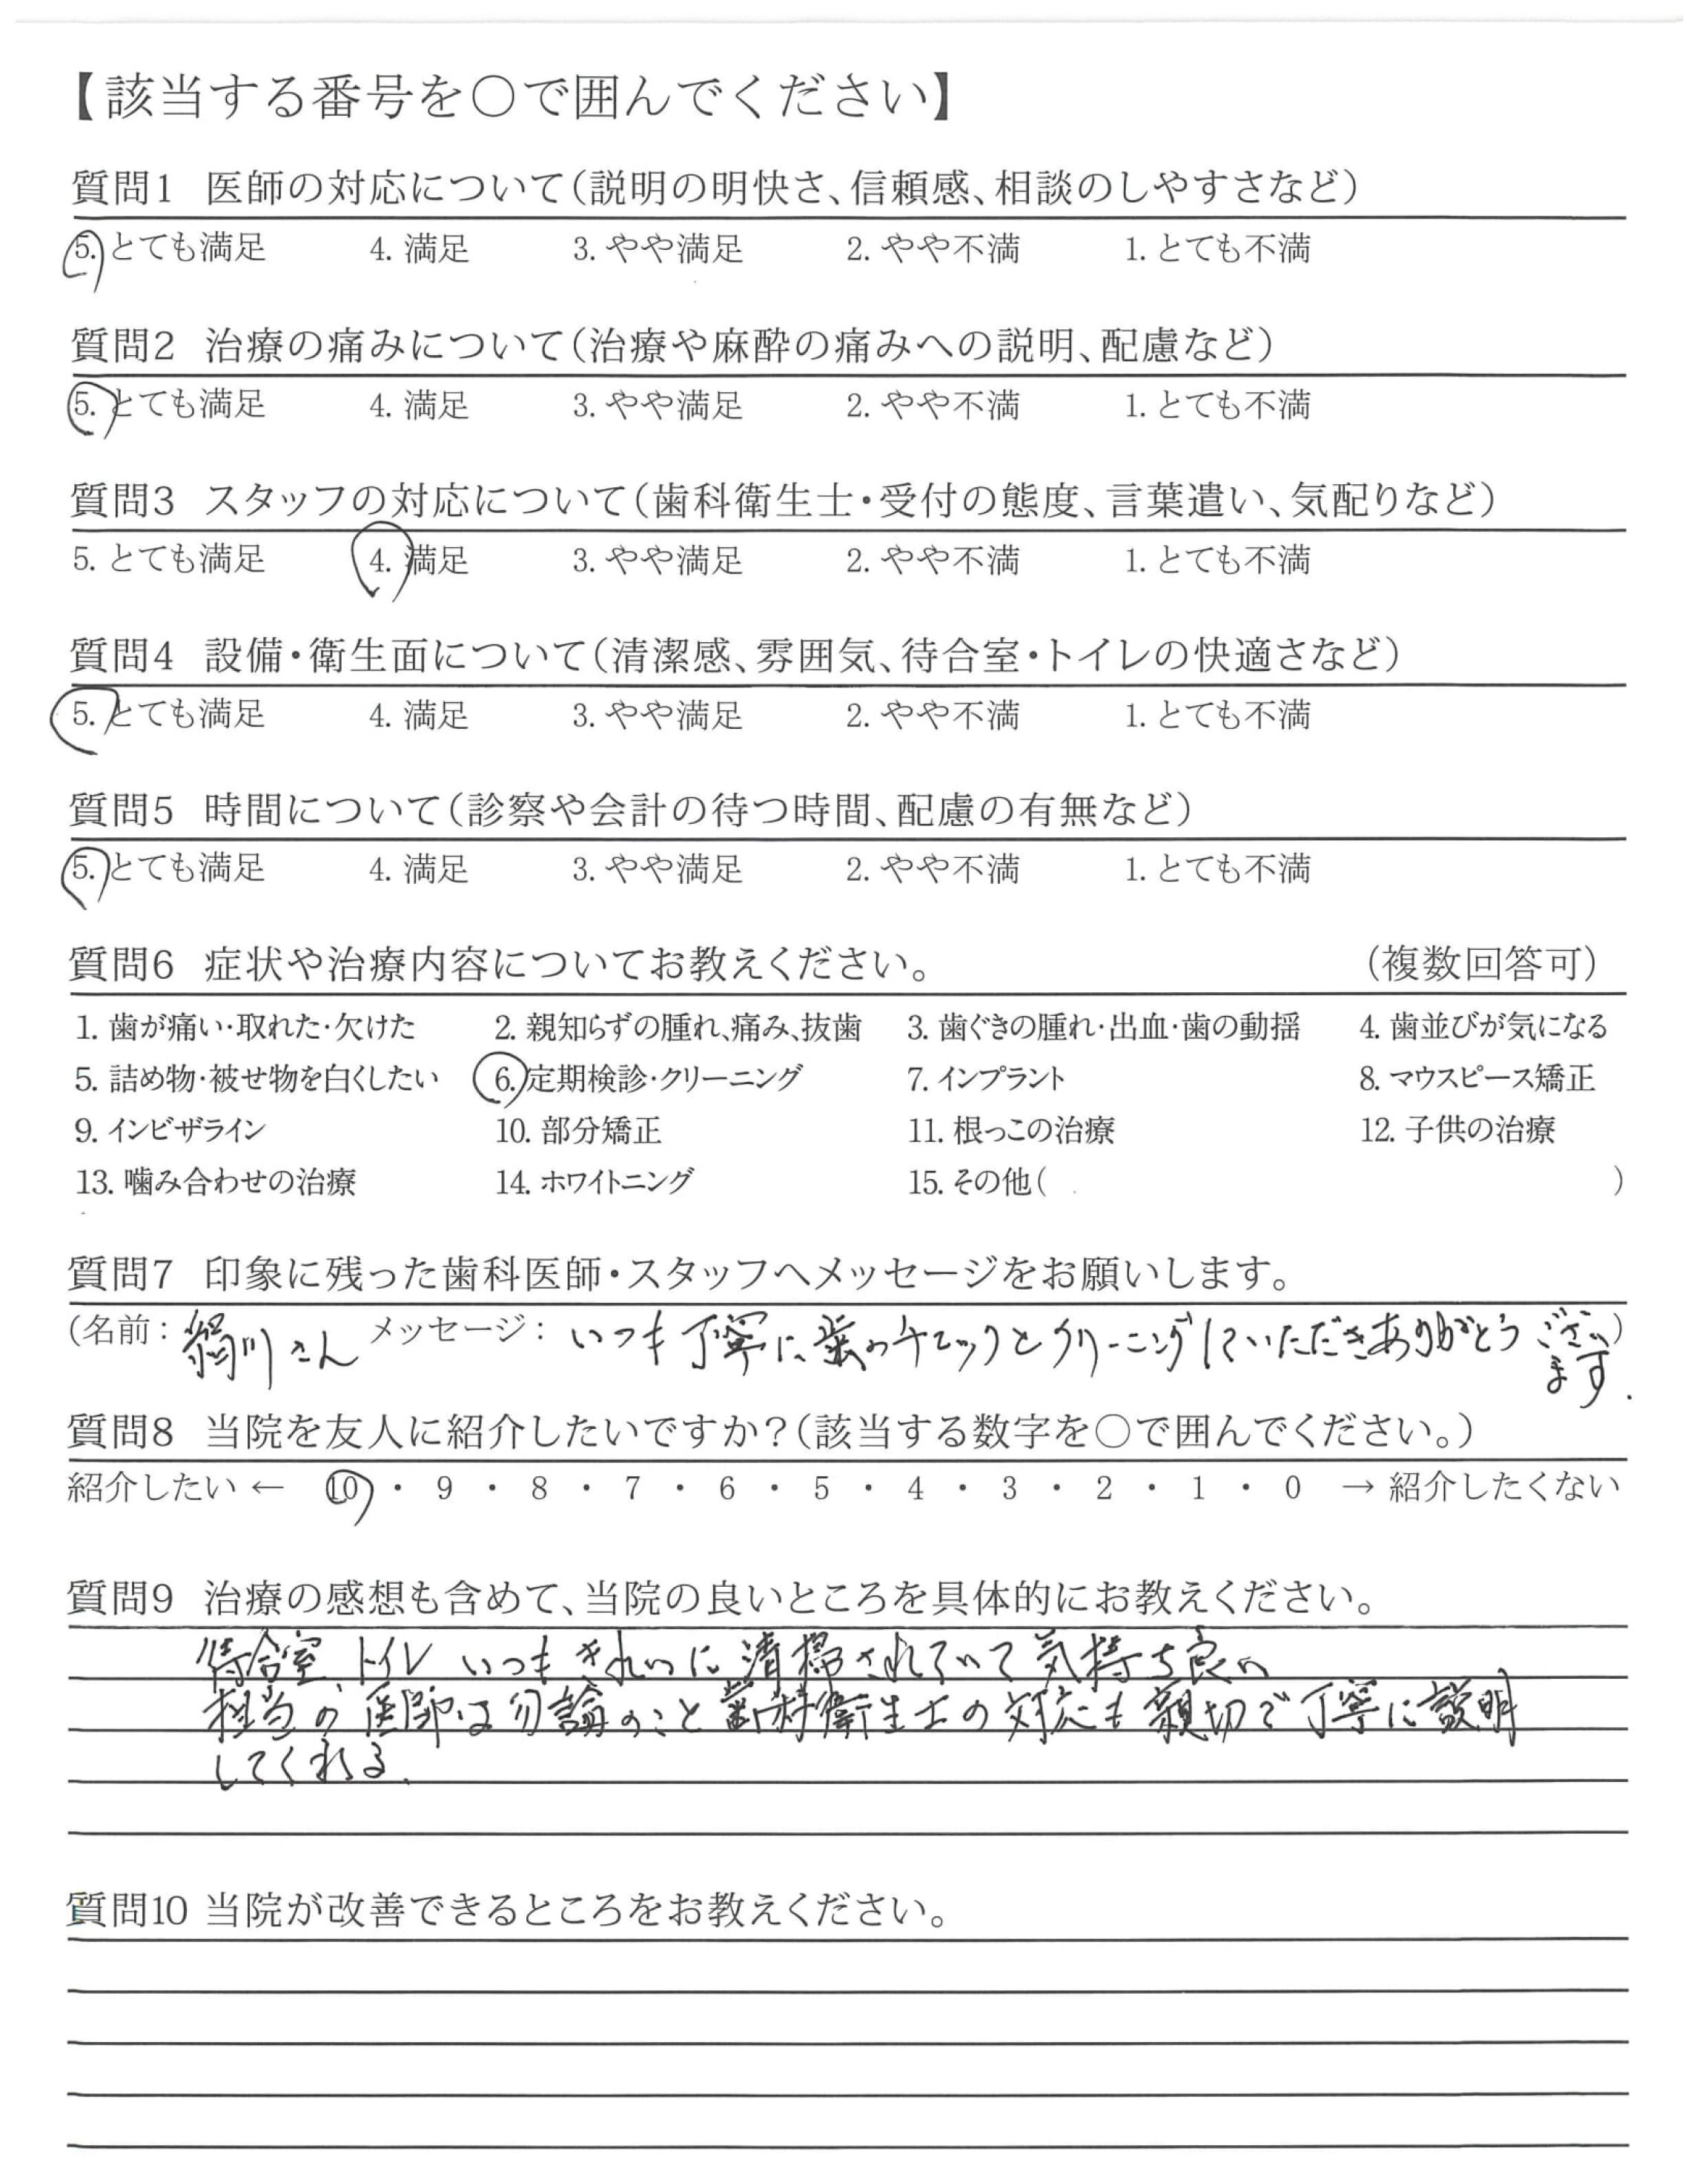 【該当する番号を○で囲んでください】
質問1 医師の対応について（説明の明快さ、信頼感、相談のしやすさなど）
5. とても満足 4. 満足 3. やや満足 2. やや不満 1. とても不満
質問2 治療の痛みについて（治療や麻酔の痛みへの説明、配慮など）
5. とても満足 4. 満足 3. やや満足 2. やや不満 1. とても不満
質問3 スタッフの対応について（歯科衛生士・受付の態度、言葉遣い、気配りなど）
5. とても満足 4. 満足 3. やや満足 2. やや不満 1. とても不満
質問4 設備・衛生面について（清潔感、雰囲気、待合室・トイレの快適さなど）
5. とても満足 4. 満足 3. やや満足 2. やや不満 1. とても不満
質問5 時間について（診察や会計の待つ時間、配慮の有無など）
5. とても満足 4. 満足 3. やや満足 2. やや不満 1. とても不満
質問6 症状や治療内容についてお教えください。 （複数回答可）
1. 歯が痛い・取れた・欠けた 2. 親知らずの腫れ、痛み、抜歯 3. 歯ぐきの腫れ・出血・歯の動揺 4. 歯並びが気になる
5. 詰め物・被せ物を白くしたい 6. 定期検診・クリーニング 7. インプラント 8. マウスピース矯正
9. インビザライン 10. 部分矯正 11. 根っこの治療 12. 子供の治療
13. 噛み合わせの治療 14. ホワイトニング 15. その他（ ）
質問7 印象に残った歯科医師・スタッフへメッセージをお願いします。
（名前： 川さん メッセージ： いつも丁寧に歯のチェックとクリーニングしていただきありがとうござい）
ます.
質問8 当院を友人に紹介したいですか？（該当する数字を○で囲んでください。）
紹介したい ← 10 ・ 9 ・ 8 ・ 7 ・ 6 ・ 5 ・ 4 ・ 3 ・ 2 ・ 1 ・ 0 → 紹介したくない
質問9 治療の感想も含めて、当院の良いところを具体的にお教えください。
待合室、トイレ いつもきれいに清掃されていて気持ち良い
担当の医師は勿論のこと歯科衛生士の対応も親切で丁寧に説明
してくれる.
質問10 当院が改善できるところをお教えください。